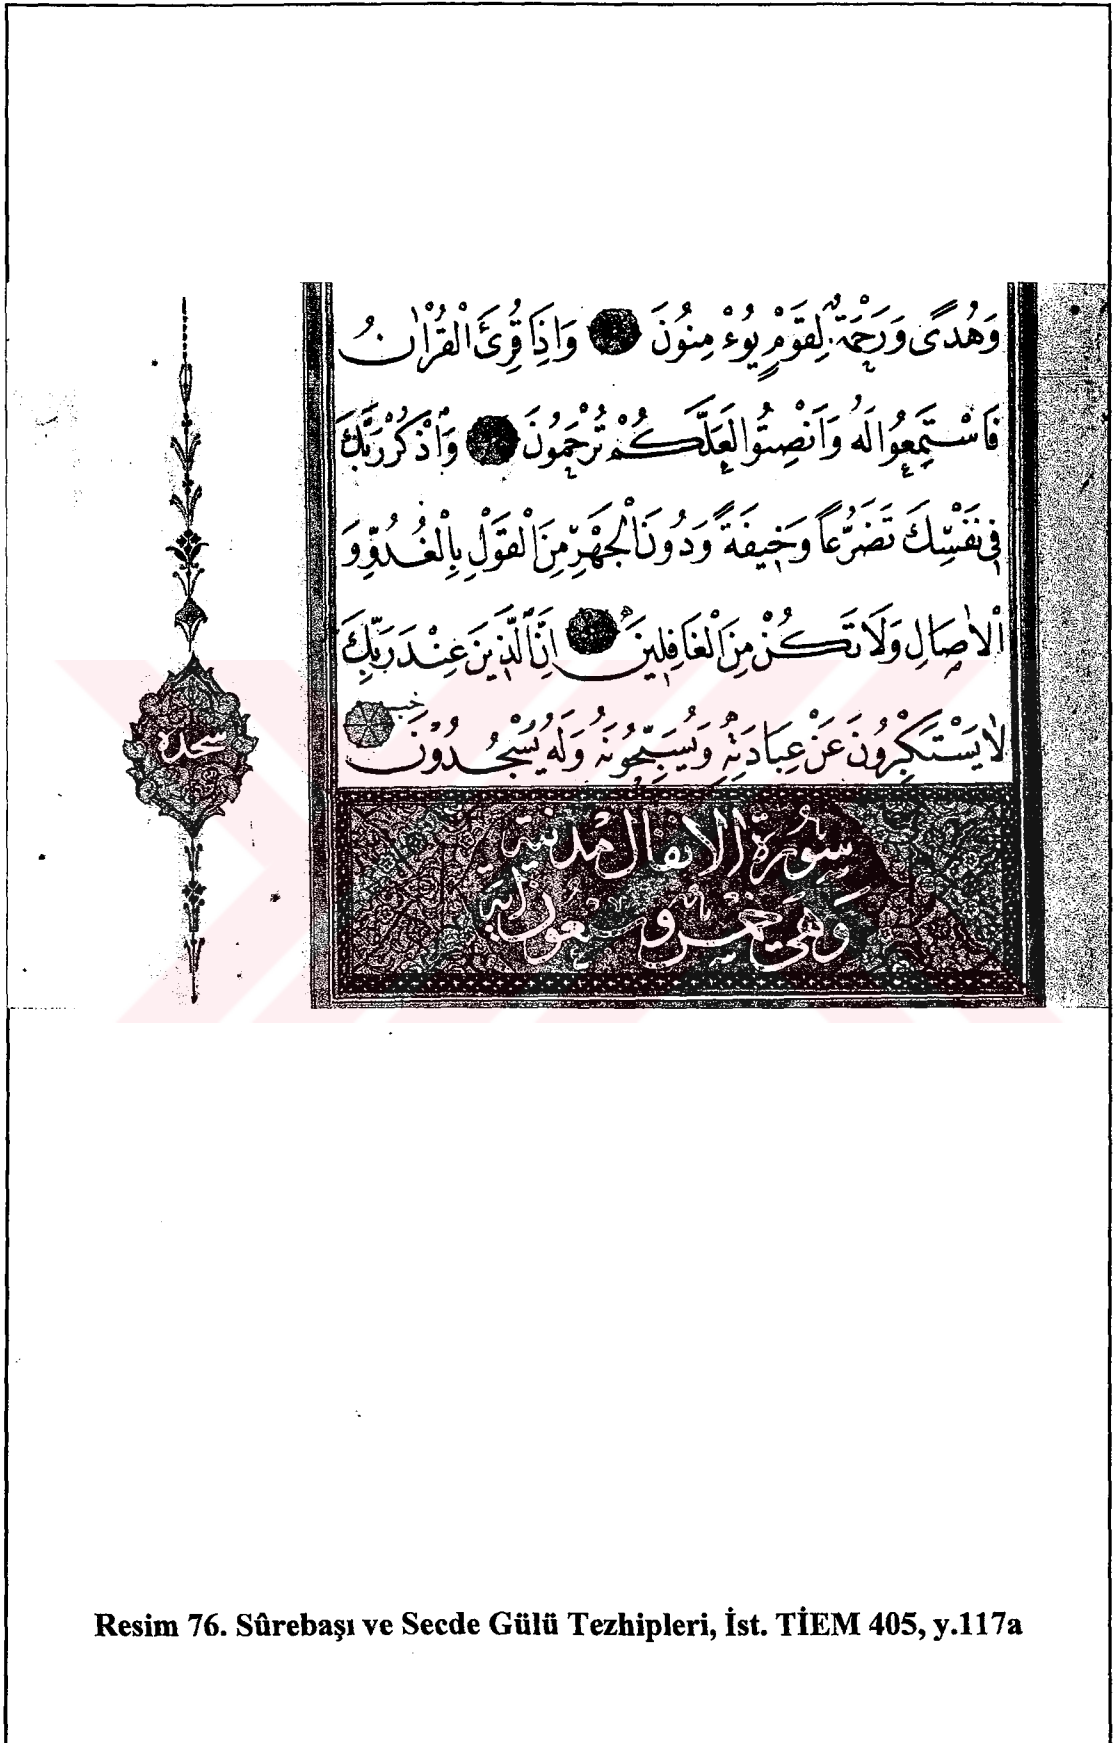 وَهُدًى وَرَحْمَةٌ لِقَوْمٍ يُوءْمِنُونَ وَاِذَا قُرِئَ الْقُرْاٰنُ
فَاسْتَمِعُوا لَهُ وَاَنْصِتُوا لَعَلَّكُمْ تُرْحَمُونَ وَاذْكُرْ رَبَّكَ
فِى نَفْسِكَ تَضَرُّعاً وَخِيفَةً وَدُونَ الْجَهْرِ مِنَ الْقَوْلِ بِالْغُدُوِّ وَ
الْاٰصَالِ وَلَا تَكُنْ مِنَ الْغَافِلِينَ اِنَّ الَّذِينَ عِنْدَ رَبِّكَ
لَا يَسْتَكْبِرُونَ عَنْ عِبَادَتِهِ وَيُسَبِّحُونَهُ وَلَهُ يَسْجُدُونَ
سجده
سورة الانفال مدنية
وهي خمس و سبعون اية
Resim 76. Sûrebaşı ve Secde Gülü Tezhipleri, İst. TİEM 405, y.117a